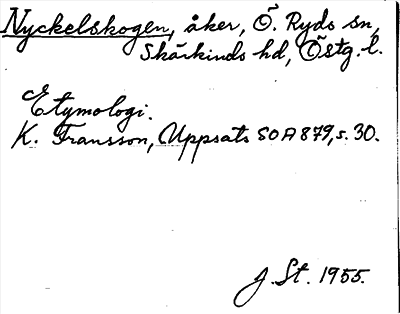 Nyckelskogen, åker, Ö. Ryds sn,
Skärkinds hd, Östg. l.
Etymologi.
K. Fransson, Uppsats SOA 879, s. 30.
J. St. 1955.